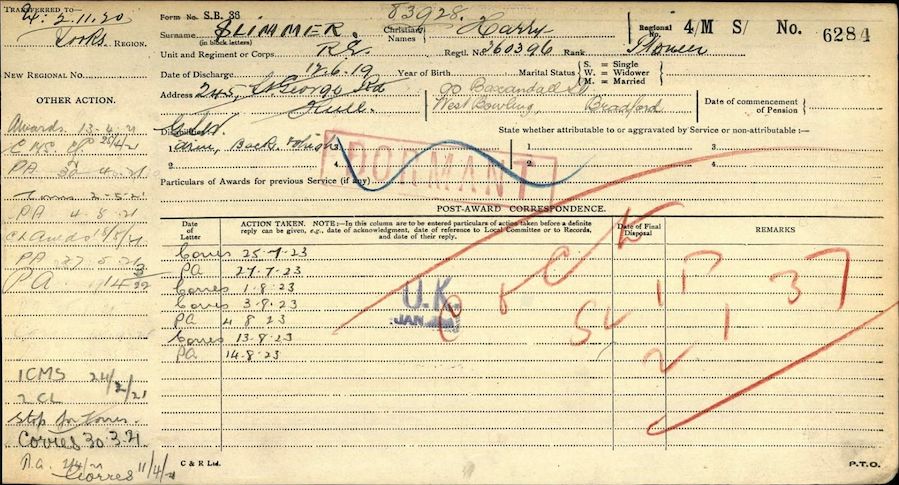 TRANSFERRED TO—
2.11.20
REGION.
NEW REGIONAL No.
OTHER ACTION.
Awards 13.4.21
PA
PA 4.8.21
PA 27.5.21
PA
ICMS 24/2/21
2 CL
Stop for Corres.
Corres 30.3.21
P.A.
Corres 11/4/21
Form No. S.B. 36
83928.
Surname SLIMMER. Christian Names Harry Regional No. 4/M S/ No. 6284
(in block letters)
Unit and Regiment or Corps R.E. Regtl. No. 260396 Rank Pioneer
Date of Discharge 17.6.19 Year of Birth Marital Status S. = Single W. = Widower M. = Married
Address 245, St George Rd 90 Baxandall St
Hull. West Bowling, Bradford
Date of commencement of Pension
Disabilities
State whether attributable to or aggravated by Service or non-attributable :—
1. Arm, Back 3. 1. 3.
2. 4. 2. 4.
DORMANT
Particulars of Awards for previous Service (if any)
POST-AWARD CORRESPONDENCE.
Date of Letter
ACTION TAKEN. NOTE:—In this column are to be entered particulars of action taken before a definite reply can be given, e.g., date of acknowledgment, date of reference to Local Committee or to Records, and date of their reply.
Date of Final Disposal
REMARKS
Corres 25.7.23
PA 27.7.23
Corres 1.8.23
Corres 3.8.23
PA 4 8.23
Corres 13.8.23
PA 14.8.23
U.K.
JAN
37
21
C & R Ltd.
P.T.O.